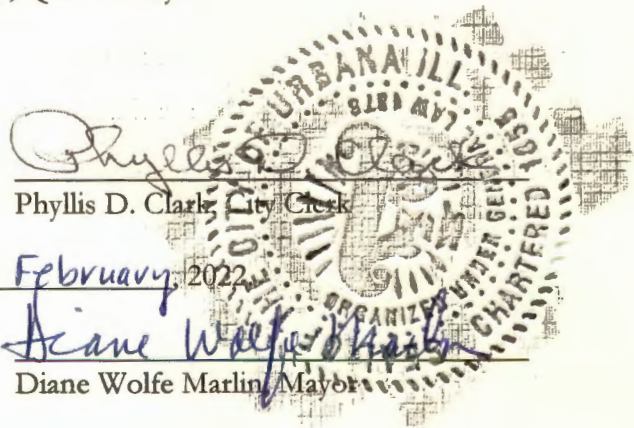 Phyllis D. Clark
Phyllis D. Clark, City Clerk
February, 2022
Diane Wolfe Marlin
Diane Wolfe Marlin, Mayor
THE CITY OF URBANA ILL.
CHARTERED 1855
ORGANIZED UNDER GENERAL LAW 1873